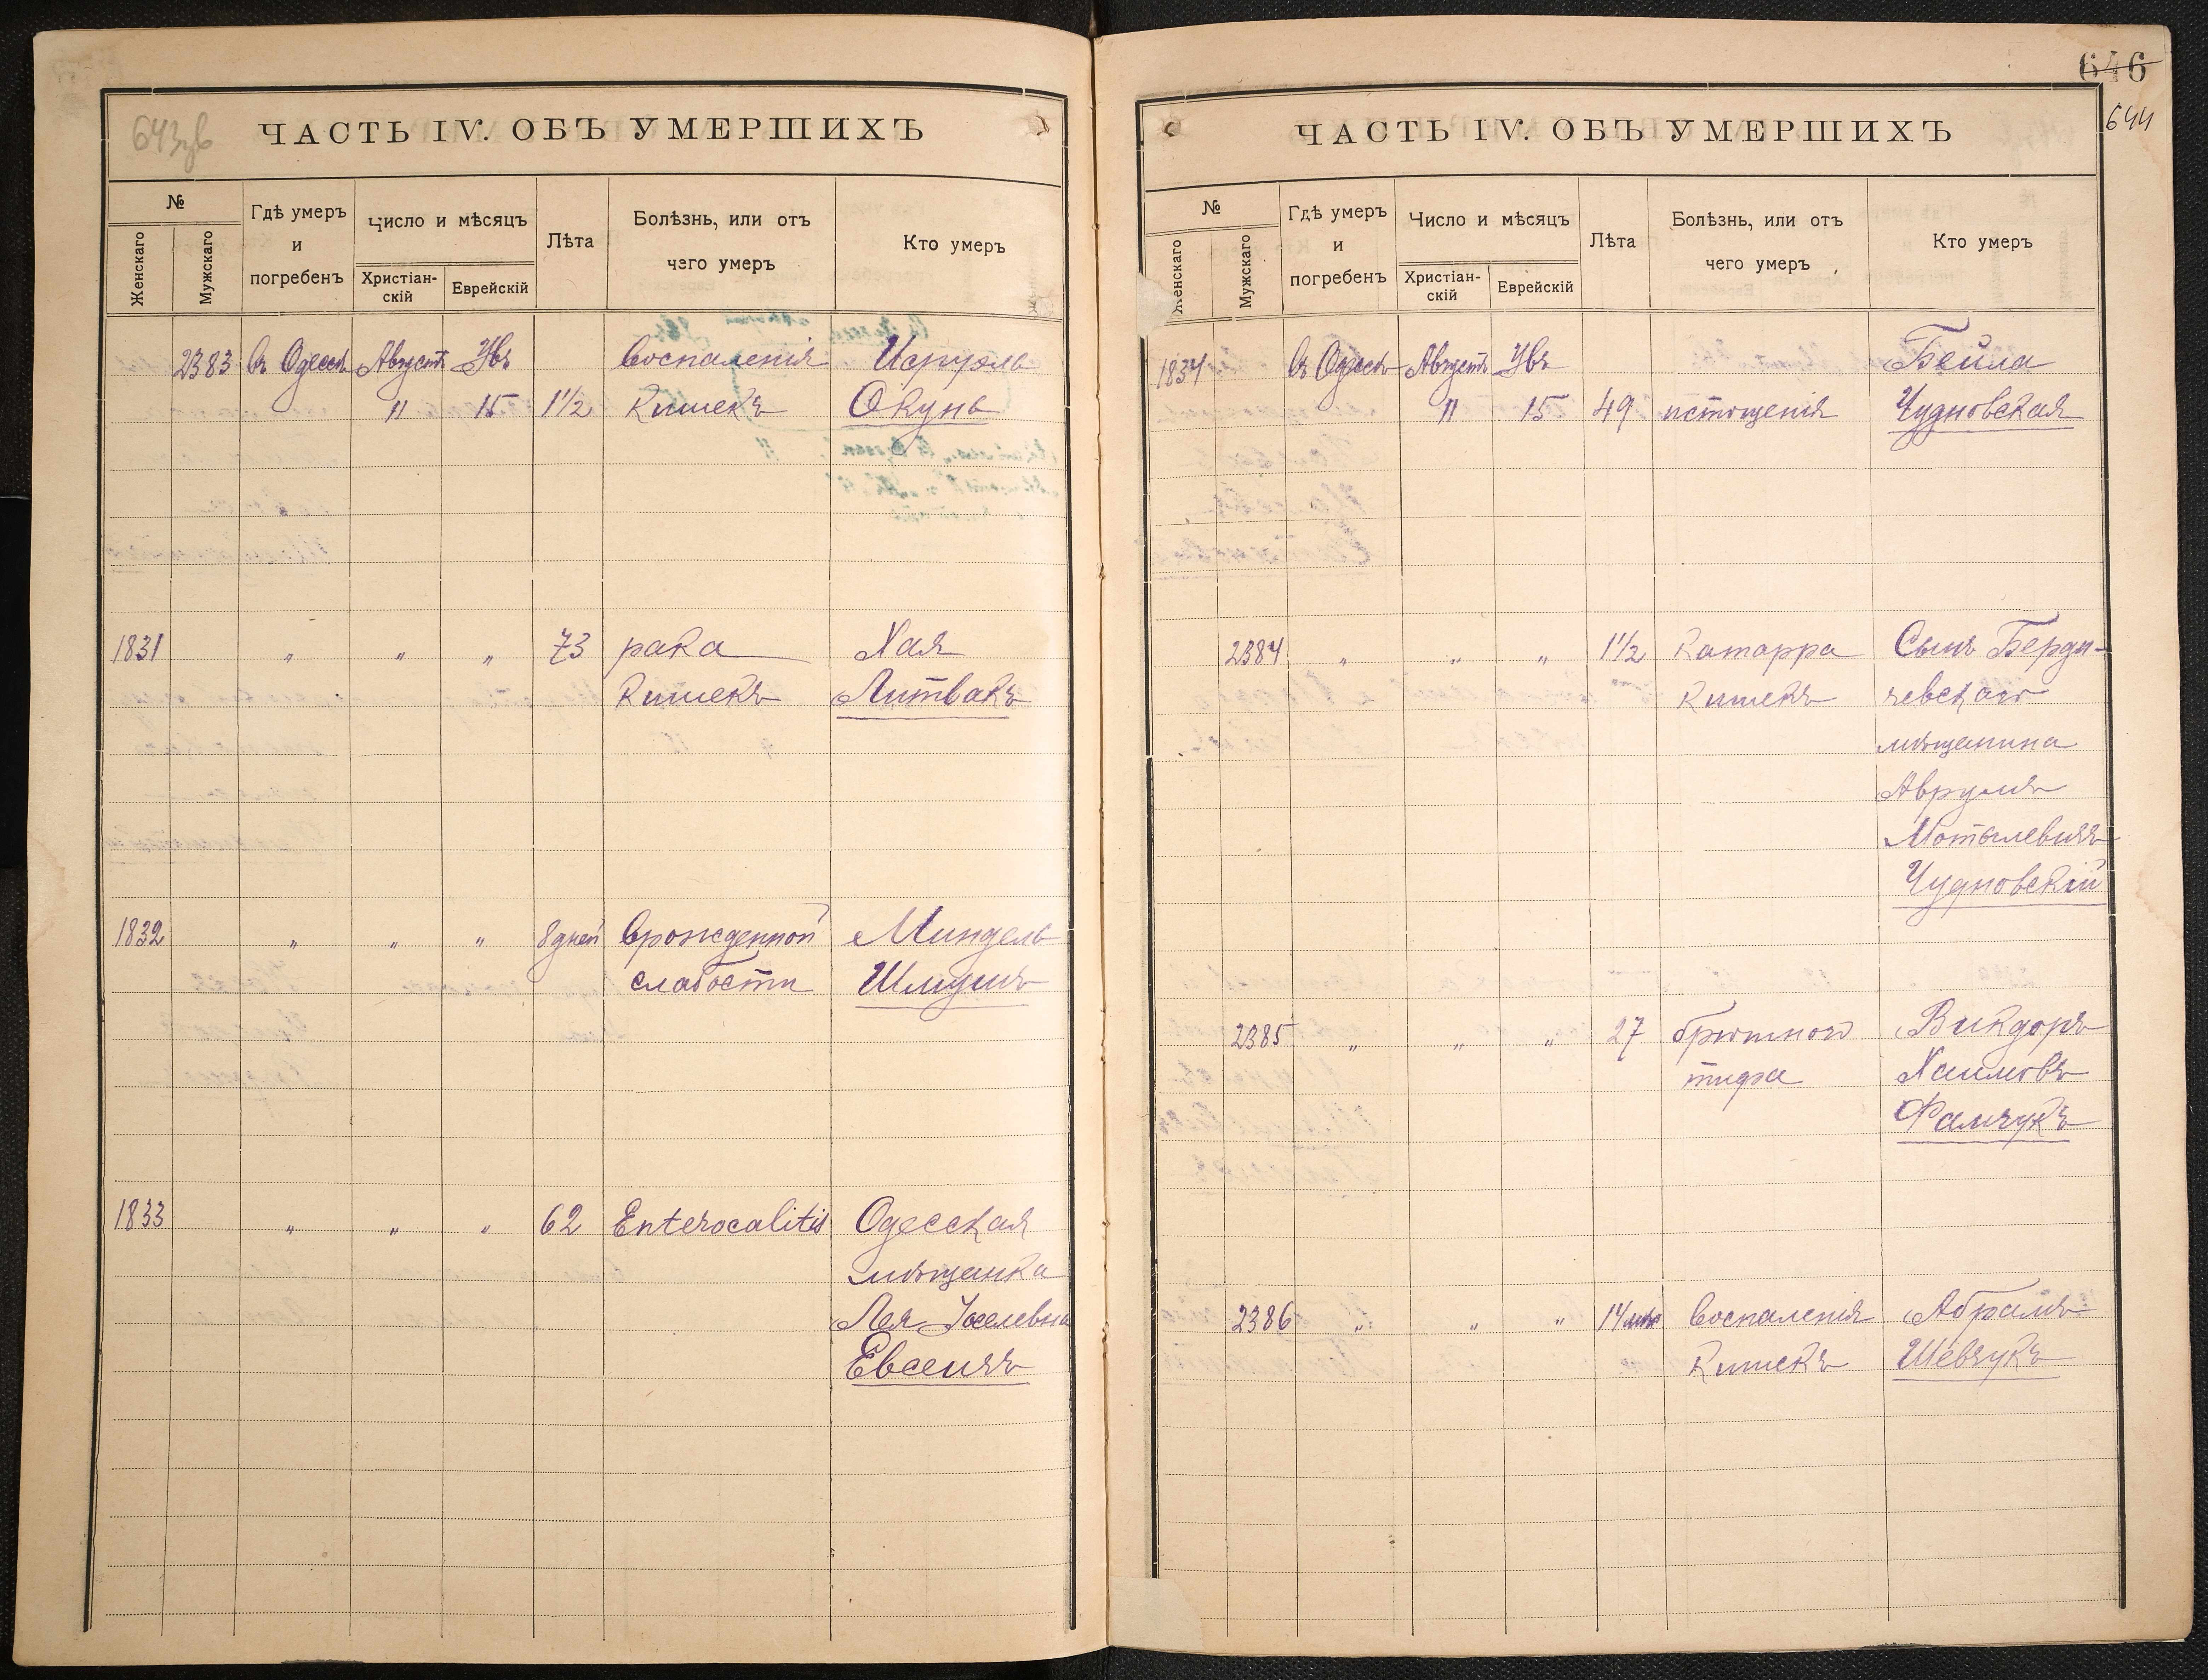 643зв
ЧАСТЬ IV. ОБЪ УМЕРШИХЪ
№
Женскаго
Мужскаго
Гдѣ умеръ
и
погребенъ
Число и мѣсяцъ
Христіан-
скій
Еврейскій
Лѣта
Болѣзнь, или отъ
чего умеръ
Кто умеръ
2383 Въ Одессѣ Августъ Увъ Воспаленія Исруэль
11 15 1 1/2 кишекъ Окунь
1831 " " " 73 рака Хая
кишекъ Литвакъ
1832 " " " 8 дней Врожденной Миндель
слабости Шмушъ
1833 " " " 62 Enterocalitis Одесская
мѣщанка
Лея Іоселевна
Евсеичъ
646
644
ЧАСТЬ IV. ОБЪ УМЕРШИХЪ
№
Женскаго
Мужскаго
Гдѣ умеръ
и
погребенъ
Число и мѣсяцъ
Христіан-
скій
Еврейскій
Лѣта
Болѣзнь, или отъ
чего умеръ
Кто умеръ
1834 Въ Одессѣ Августъ Увъ Бейла
11 15 49 истощенія Чудновская
2384 " " " 1 1/2 Катарра Сынъ Берди-
кишекъ чевскаго
мѣщанина
Аврумъ
Мотылевичъ
Чудновскій
2385 " " " 27 брюшного Викдоръ
тифа Хаимовъ
Фамчукъ
2386 " " " 14 мѣс Воспаленія Абрамъ
кишекъ Шевчукъ